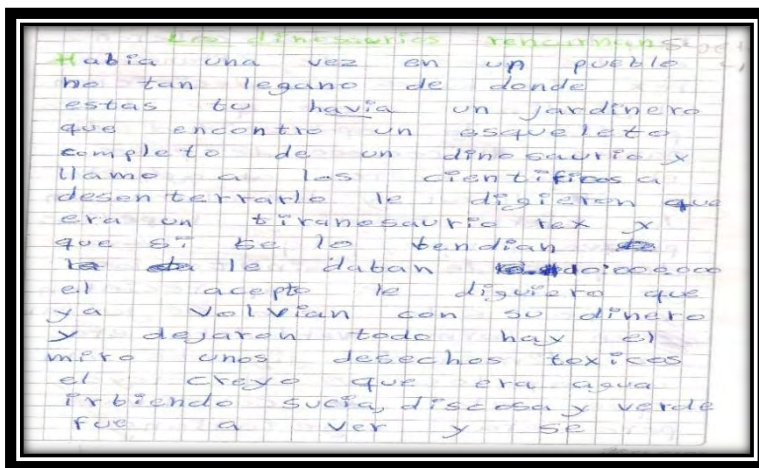 Los dinosaurios rencarnan
Había una vez en un pueblo
no tan legano de donde
estas tu havia un jardinero
que encontro un esqueleto
completo de un dinosaurio y
llamo a los cientificos a
desenterrarlo le digieron que
era un tiranosaurio rex y
que si se lo vendian
le daban 10:000,000
el acepto le diguiero que
ya volvian con su dinero
y dejaron todo hay el
miro unos desechos toxicos
el creyo que era agua
irbiendo sucia, discosa y verde
fue a ver y se